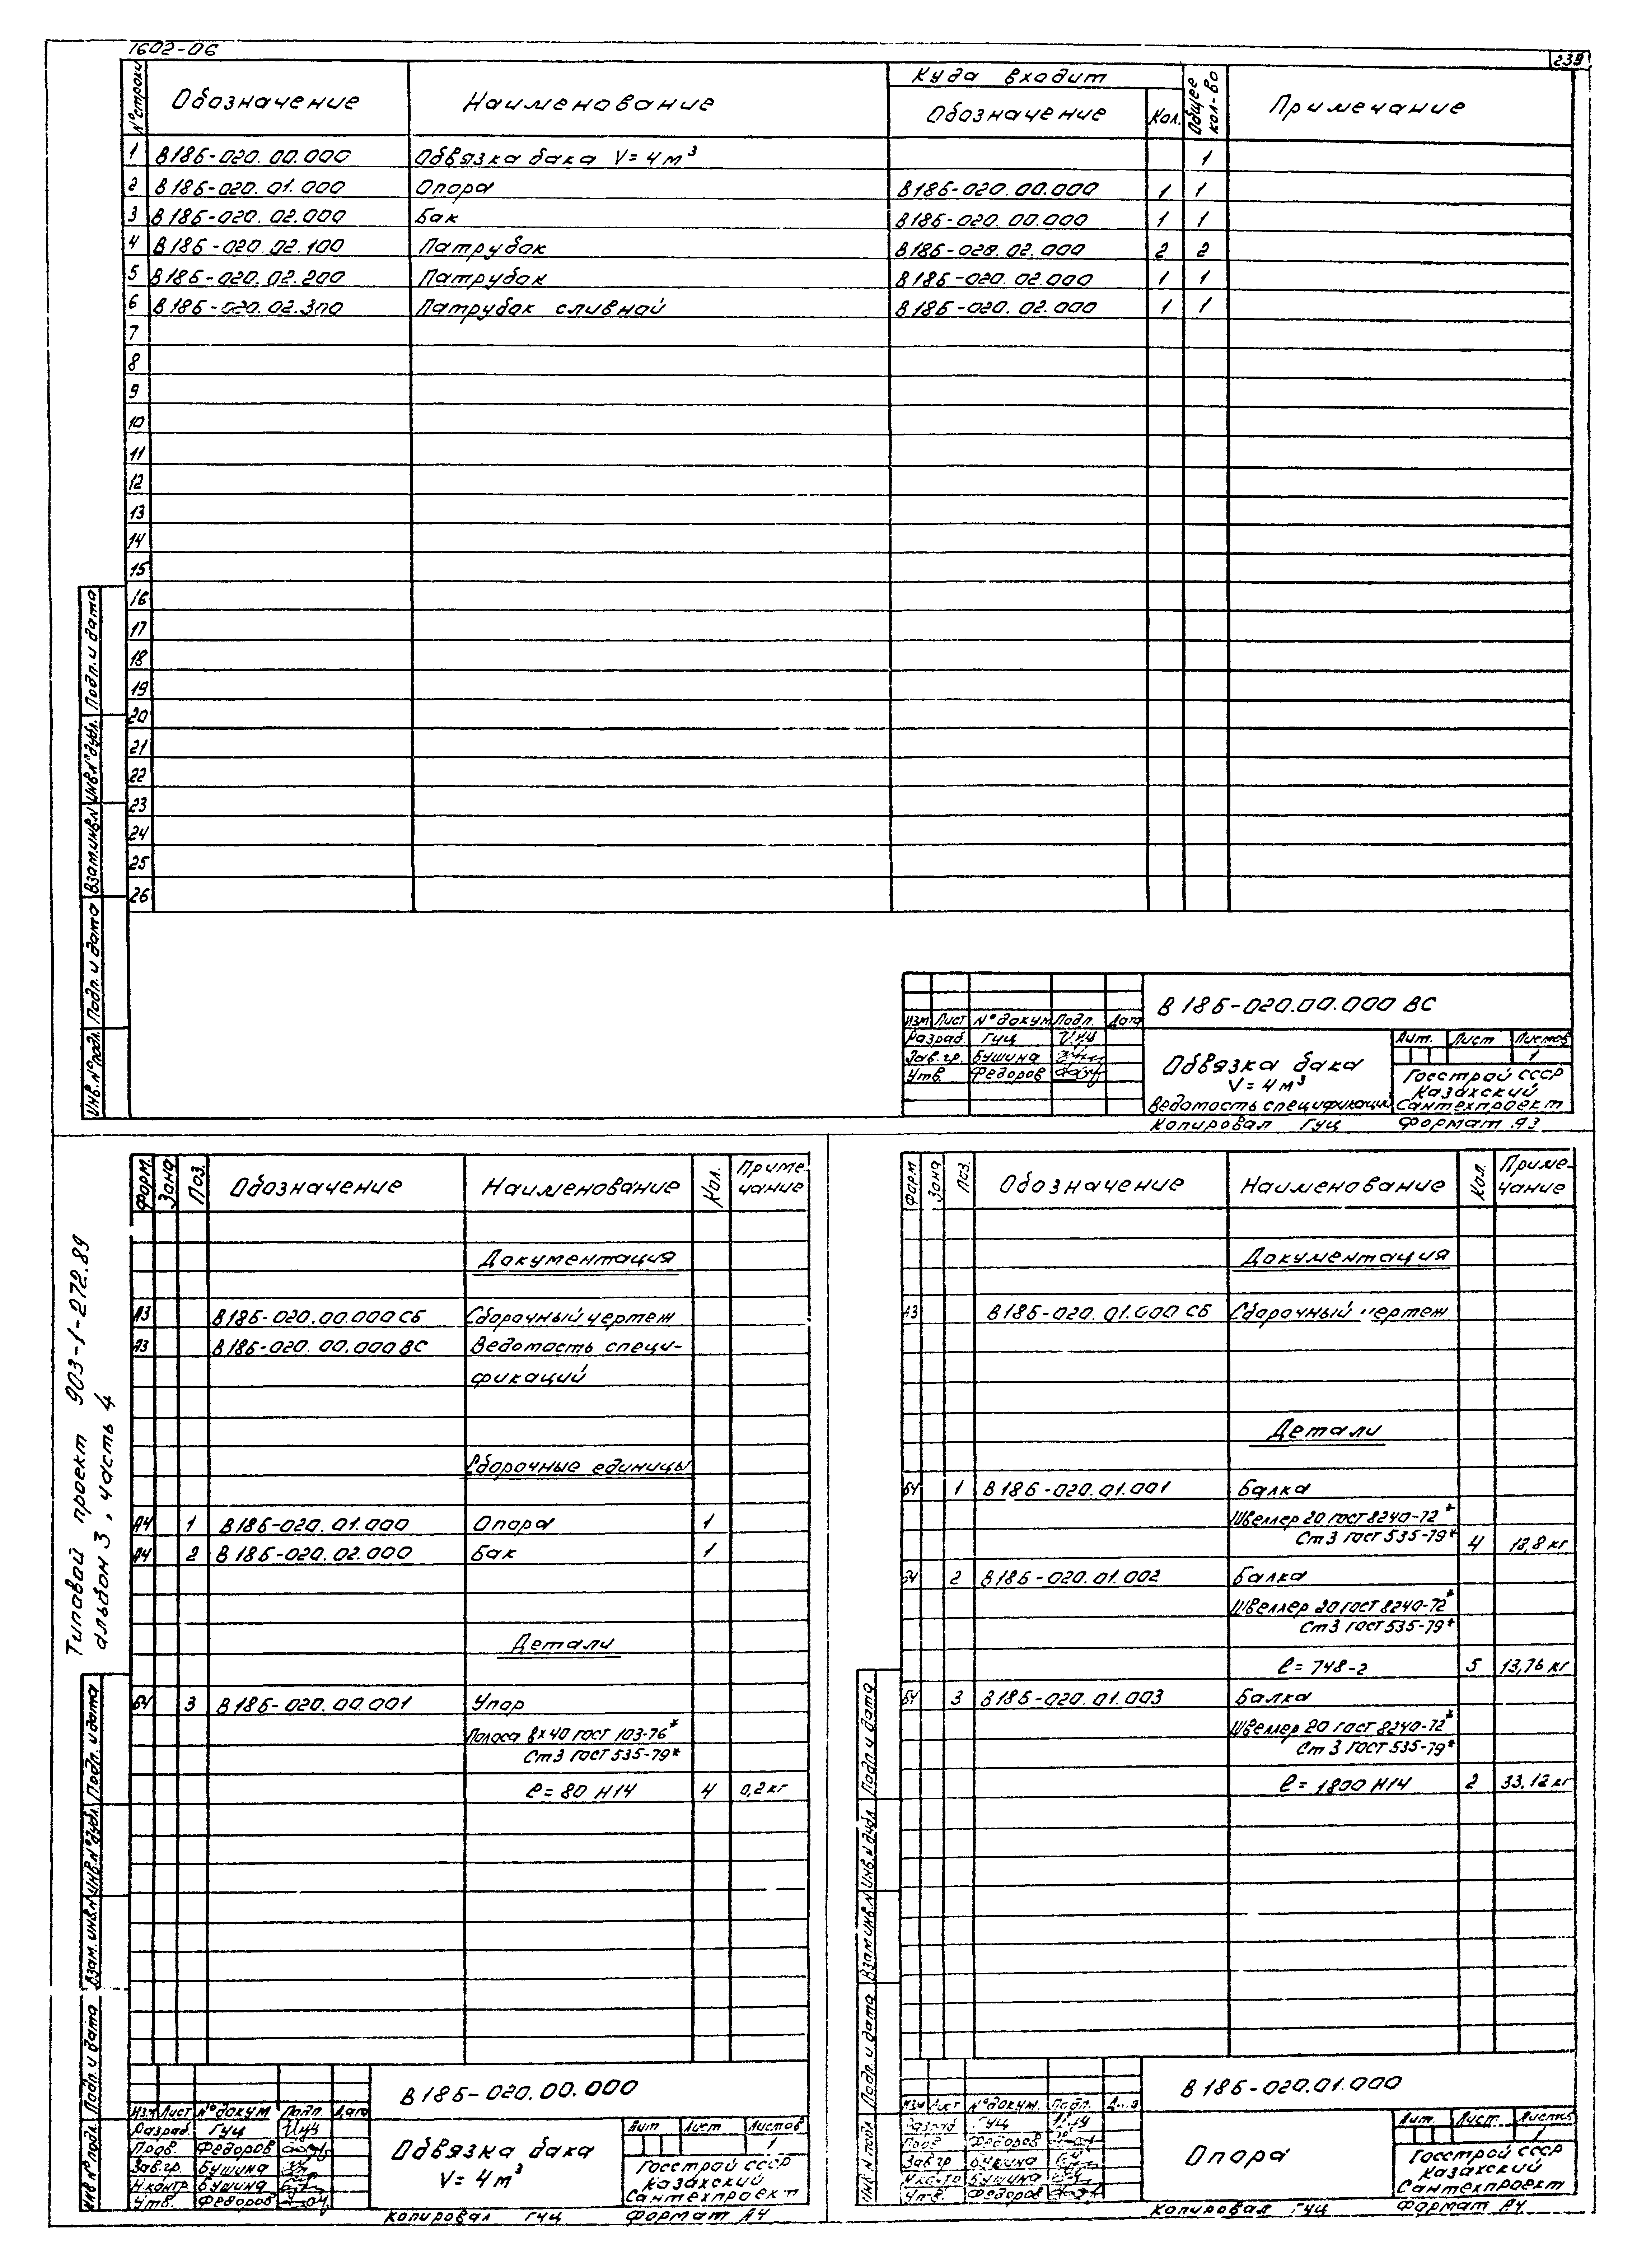 1602-06
239
№ строки Обозначение Наименование Куда входит Общее кол-во Примечание
Обозначение Кол.
1 В186-020.00.000 Обвязка бака V=4м³ 1
2 В186-020.01.000 Опора В186-020.00.000 1 1
3 В186-020.02.000 Бак В186-020.00.000 1 1
4 В186-020.02.100 Патрубок В186-020.02.000 2 2
5 В186-020.02.200 Патрубок В186-020.02.000 1 1
6 В186-020.02.300 Патрубок сливной В186-020.02.000 1 1
7
8
9
10
11
12
13
14
15
16
17
18
19
20
21
22
23
24
25
26
Инв.№подл. Подп. и дата Взам.инв.№ Инв.№дубл. Подп. и дата
В186-020.00.000 ВС
Изм Лист №докум Подп. Дата
Разраб. Гуц
Зав.гр. Бушина
Утв. Федоров
Обвязка бака
V=4м³
Ведомость спецификаций
Лит. Лист Листов
1
Госстрой СССР
Казахский
Сантехпроект
Копировал Гуц Формат А3
Типовой проект 903-1-272.89
альбом 3, часть 4
Форм. Зона Поз. Обозначение Наименование Кол. Приме-
чание
Документация
А3 В186-020.00.000 СБ Сборочный чертеж
А3 В186-020.00.000 ВС Ведомость специ-
фикаций
Сборочные единицы
А4 1 В186-020.01.000 Опора 1
А4 2 В186-020.02.000 Бак 1
Детали
БЧ 3 В186-020.00.001 Упор
Полоса 8×40 ГОСТ 103-76*
Ст3 ГОСТ 535-79*
ℓ=80 Н14 4 0,2кг
Инв №подл. Подп. и дата Взам.инв.№ Инв.№дубл. Подп. и дата
В186-020.00.000
Изм Лист №докум Подп Дата
Разраб. Гуц
Пров. Федоров
Зав гр. Бушина
Н контр Бушина
Утв. Федоров
Обвязка бака
V=4м³
Лит Лист Листов
1
Госстрой СССР
Казахский
Сантехпроект
Копировал Гуц Формат А4
Форм Зона Поз. Обозначение Наименование Кол. Приме-
чание
Документация
А3 В186-020.01.000 СБ Сборочный чертеж
Детали
БЧ 1 В186-020.01.001 Балка
Швеллер 20 ГОСТ 8240-72*
Ст3 ГОСТ 535-79* 4 18,8 кг
БЧ 2 В186-020.01.002 Балка
Швеллер 20 ГОСТ 8240-72*
Ст3 ГОСТ 535-79*
ℓ=748-2 5 13,76 кг
БЧ 3 В186-020.01.003 Балка
Швеллер 20 ГОСТ 8240-72*
Ст3 ГОСТ 535-79*
ℓ=1800 Н14 2 33,12 кг
Инв №подл Подп. и дата Взам инв.№ Инв.№дубл Подп и дата
В186-020.01.000
Изм Лист №докум. Подп.
Разраб. Гуц
Пров Федоров
Зав гр Бушина
Н контр Бушина
Утв. Федоров
Опора
Лит. Лист. Листов
1
Госстрой СССР
Казахский
Сантехпроект
Копировал Гуц Формат А4